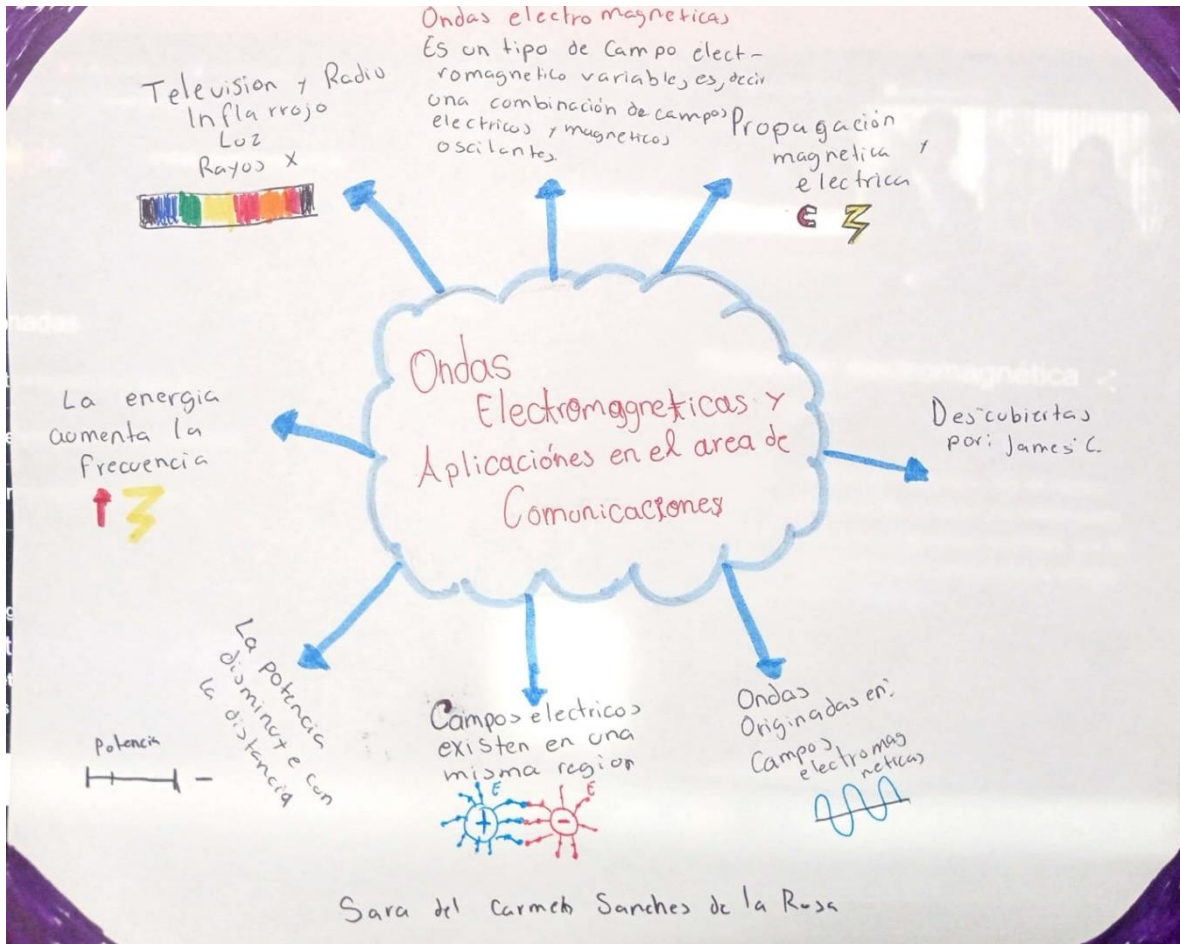 Ondas electro magneticas
Es un tipo de Campo elect-
romagnetico variable, es, decir
una combinación de campos
electricos y magneticos
oscilantes.
Television y Radio
Inflarrojo
Luz
Rayos X
Propagación
magnetica y
electrica
Ondas
Electromagneticas y
Aplicaciónes en el area de
Comunicaciones
La energia
aumenta la
frecuencia
Descubiertas
por: James C.
La potencia
disminuye con
la distancia
Potencia
Campos electricos
existen en una
misma region
E
E
+
-
Ondas
Originadas en:
Campos
electromag
neticas
Sara del Carmen Sanches de la Rosa